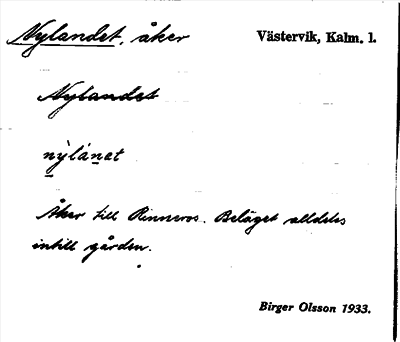 Nylandet, åker
Västervik, Kalm. l.
Nylandet
nỳlánet
Åker till Rinneros. Beläget alldeles
intill gården.
Birger Olsson 1933.